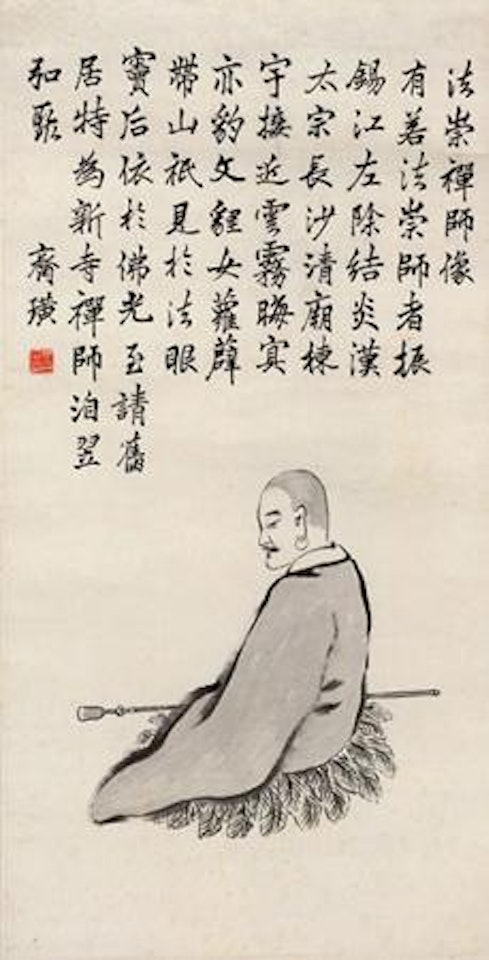 法崇禪師像
有若法崇師者振
錫江左除結炎漢
太宗長沙清廟棟
宇接近雲霧晦冥
亦豹文貍女蘿薜
帶山祇見於法眼
竇后依於佛光至請舊
居特為新寺禪師洎翌
弘 齊璜